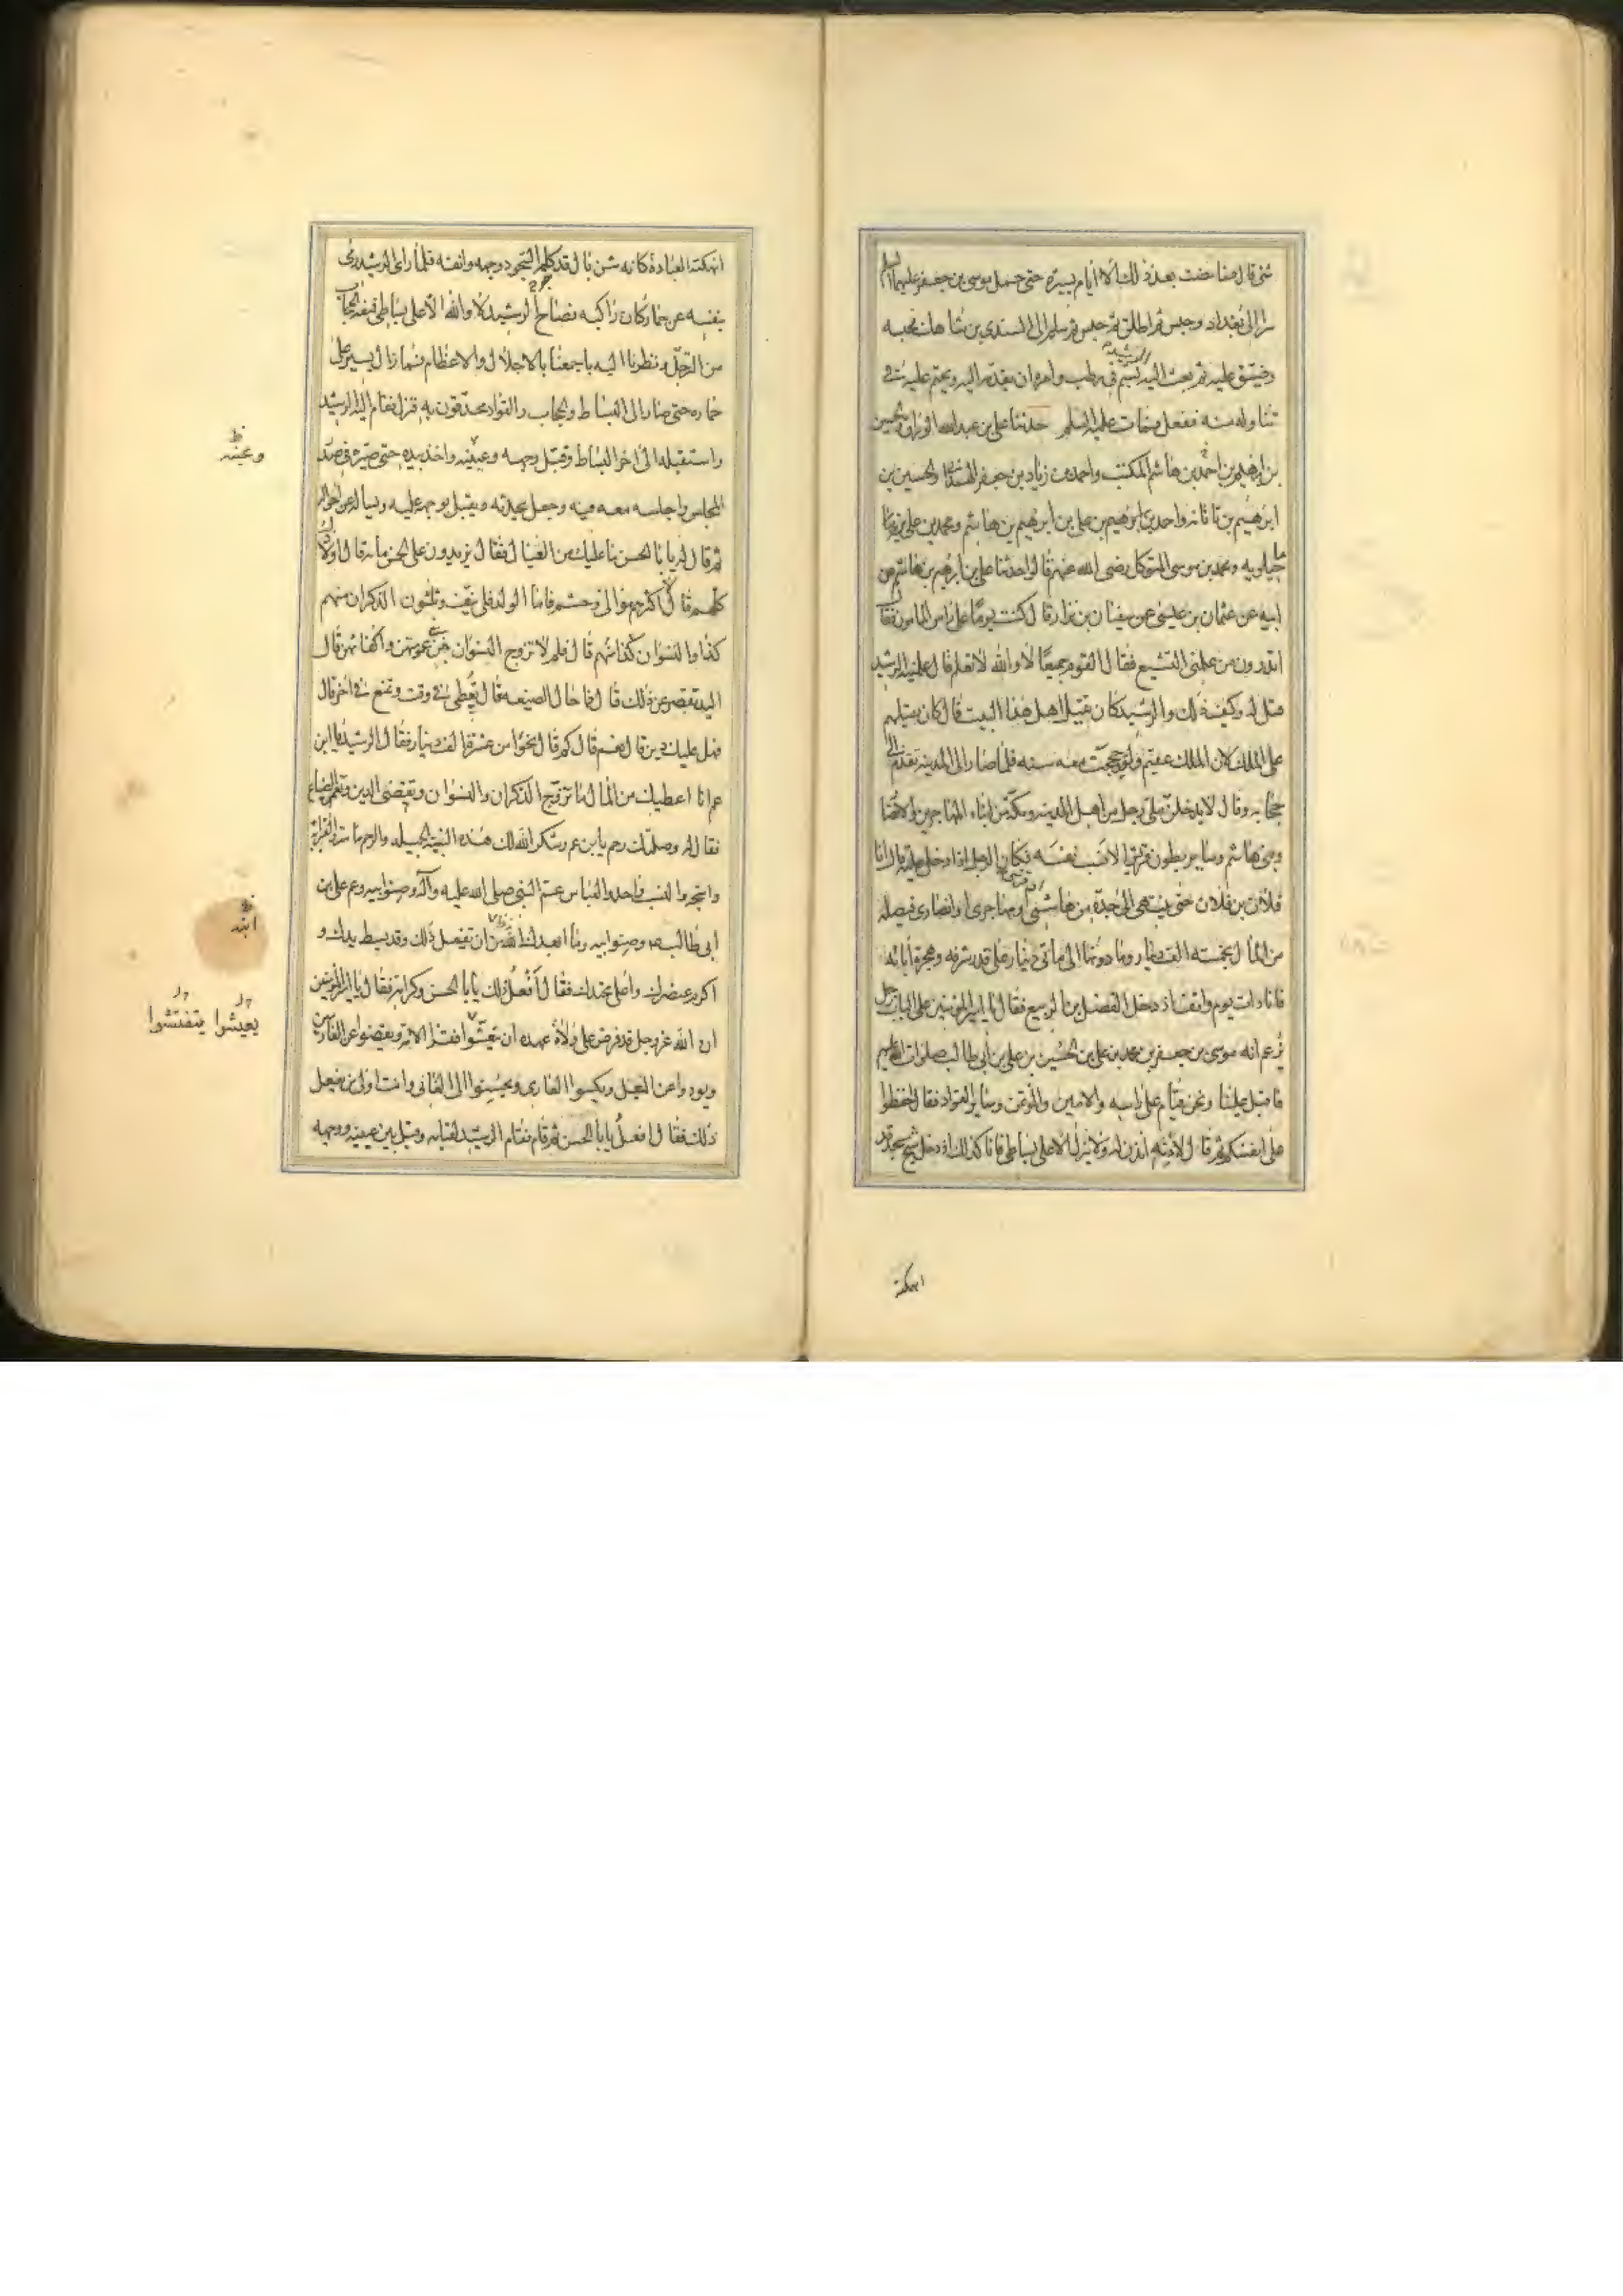 شئ قال فما مضت بعد ذلك الا ايام يسيرة حتى حمل موسى بن جعفر عليهما السلم
سرا الى بغداد وحبس ثم اطلق ثم حبس ثم سلم الى السندي بن شاهك فحبسه
وضيق عليه ثم بعث اليه الرشيد بسم في رطب وامره ان يقدمه اليه ويحتم عليه في
تناوله منه ففعل فمات عليه السلم حدثنا علي بن عبدالله الوراق والحسين
بن ابرهيم بن احمد بن هاشم المكتب واحمد بن زياد بن جعفر الهمداني والحسين بن
ابرهيم بن تاتانه واحمد بن ابرهيم بن علي بن ابرهيم بن هاشم ومحمد بن علي
ماجيلويه ومحمد بن موسى المتوكل رضى الله عنهم قالوا حدثنا علي بن ابرهيم بن هاشم عن
ابيه عن عثمان بن عيسى عن سفيان بن نزار قال كنت يوما على راس المامون فقال
اتدرون من علمني التشيع فقال القوم جميعا لا والله لا نعلم قال علمنيه الرشيد
قيل له وكيف ذلك والرشيد كان يقتل اهل هذا البيت قال كان يقتلهم
على الملك لان الملك عقيم ولقد حججت معه سنه فلما صار الى المدينه تقدم الى
حجابه وقال لا يدخلن علي رجل من اهل المدينه ومكة من ابناء المهاجرين والانصار
وبني هاشم وساير بطون قريش الا نسب نفسه فكان الرجل اذا دخل عليه قال انا
فلان بن فلان حتى ينتهي الى جده من هاشمي او قرشي او مهاجرى او انصارى فيصله
من المال بخمسة الف دينار وما دونها الى مائتي دينار على قدر شرفه وهجرة ابائه
فانا ذات يوم واقف اذ دخل الفضل بن الربيع فقال يا امير المؤمنين على الباب رجل
زعم انه موسى بن جعفر بن محمد بن علي بن الحسين بن علي بن أبي طالب صلوات الله عليهم
فاقبل علينا ونحن قيام على راسه والامين والمؤتمن وساير القواد فقال احفظوا
على انفسكم ثم قال لاذنه ائذن له ولا ينزل الا على بساطي فانا كذلك اذ دخل شيخ مسجد قد
انهكته
انهكته العبادة كانه شن بال قد كلم السجود وجهه وانفه فلما راى الرشيد رمى
بنفسه عن حمار كان راكبه فصاح الرشيد لا والله الا على بساطي فمنعه الحجاب
من الترجل ونظرنا اليه باجمعنا بالاجلال والاعظام فما زال يسير على
حماره حتى صار الى البساط والحجاب والقواد محدقون به فنزل فقام اليه الرشيد
واستقبله الى اخر البساط وقبل وجهه وعينيه واخذ بيده حتى صيره في صدر
المجلس واجلسه معه فيه وجعل يحدثه ويقبل بوجهه عليه ويساله عن احواله
ثم قال له يا با الحسن ما عليك من العيال فقال يزيدون على الخمسمائة قال اولاد
كلهم قال لا اكثرهم موالى وحشم فاما الولد فلي نيف وثلثون الذكران منهم
كذا والنسوان كذا منهم قال فلم لا تزوج النسوان من بني عمومتهن واكفائهن قال
اليد تقصر عن ذلك قال فما حال الضيعه قال تعطى في وقت وتمنع في اخر قال
فهل عليك دين قال نعم قال كم قال نحوا من عشرة الف دينار فقال الرشيد يا ابن
عم انا اعطيك من المال ما تزوج الذكران والنسوان وتقضى الدين وتعمر الضياع
فقال له وصلتك رحم يا بن عم وشكر الله لك هذه النية الجميله والرحم ماسة والقرابة
واشجه والنسب واحد والعباس عم النبي صلى الله عليه وآله وصنو ابيه وعم علي بن
ابي طالب وصنو ابيه وما ابعدك الله من ان تفعل ذلك وقد بسط يدك و
اكرم عنصرك واعلى محتدك فقال أفعل ذلك يا با الحسن وكرامة فقال يا امير المؤمنين
ان الله عز وجل قد فرض على ولاة عهده ان ينعشوا فقراء الامة ويقضوا عن الغارمين
ويودوا عن المثقل ويكسوا العارى ويحسنوا الى العاني وانت اولى من يفعل
ذلك فقال افعل يا با الحسن ثم قام فقام الرشيد لقيامه وقبل بين عينيه ووجهه
وعينه
ابتد
يعيشوا يتفتشوا